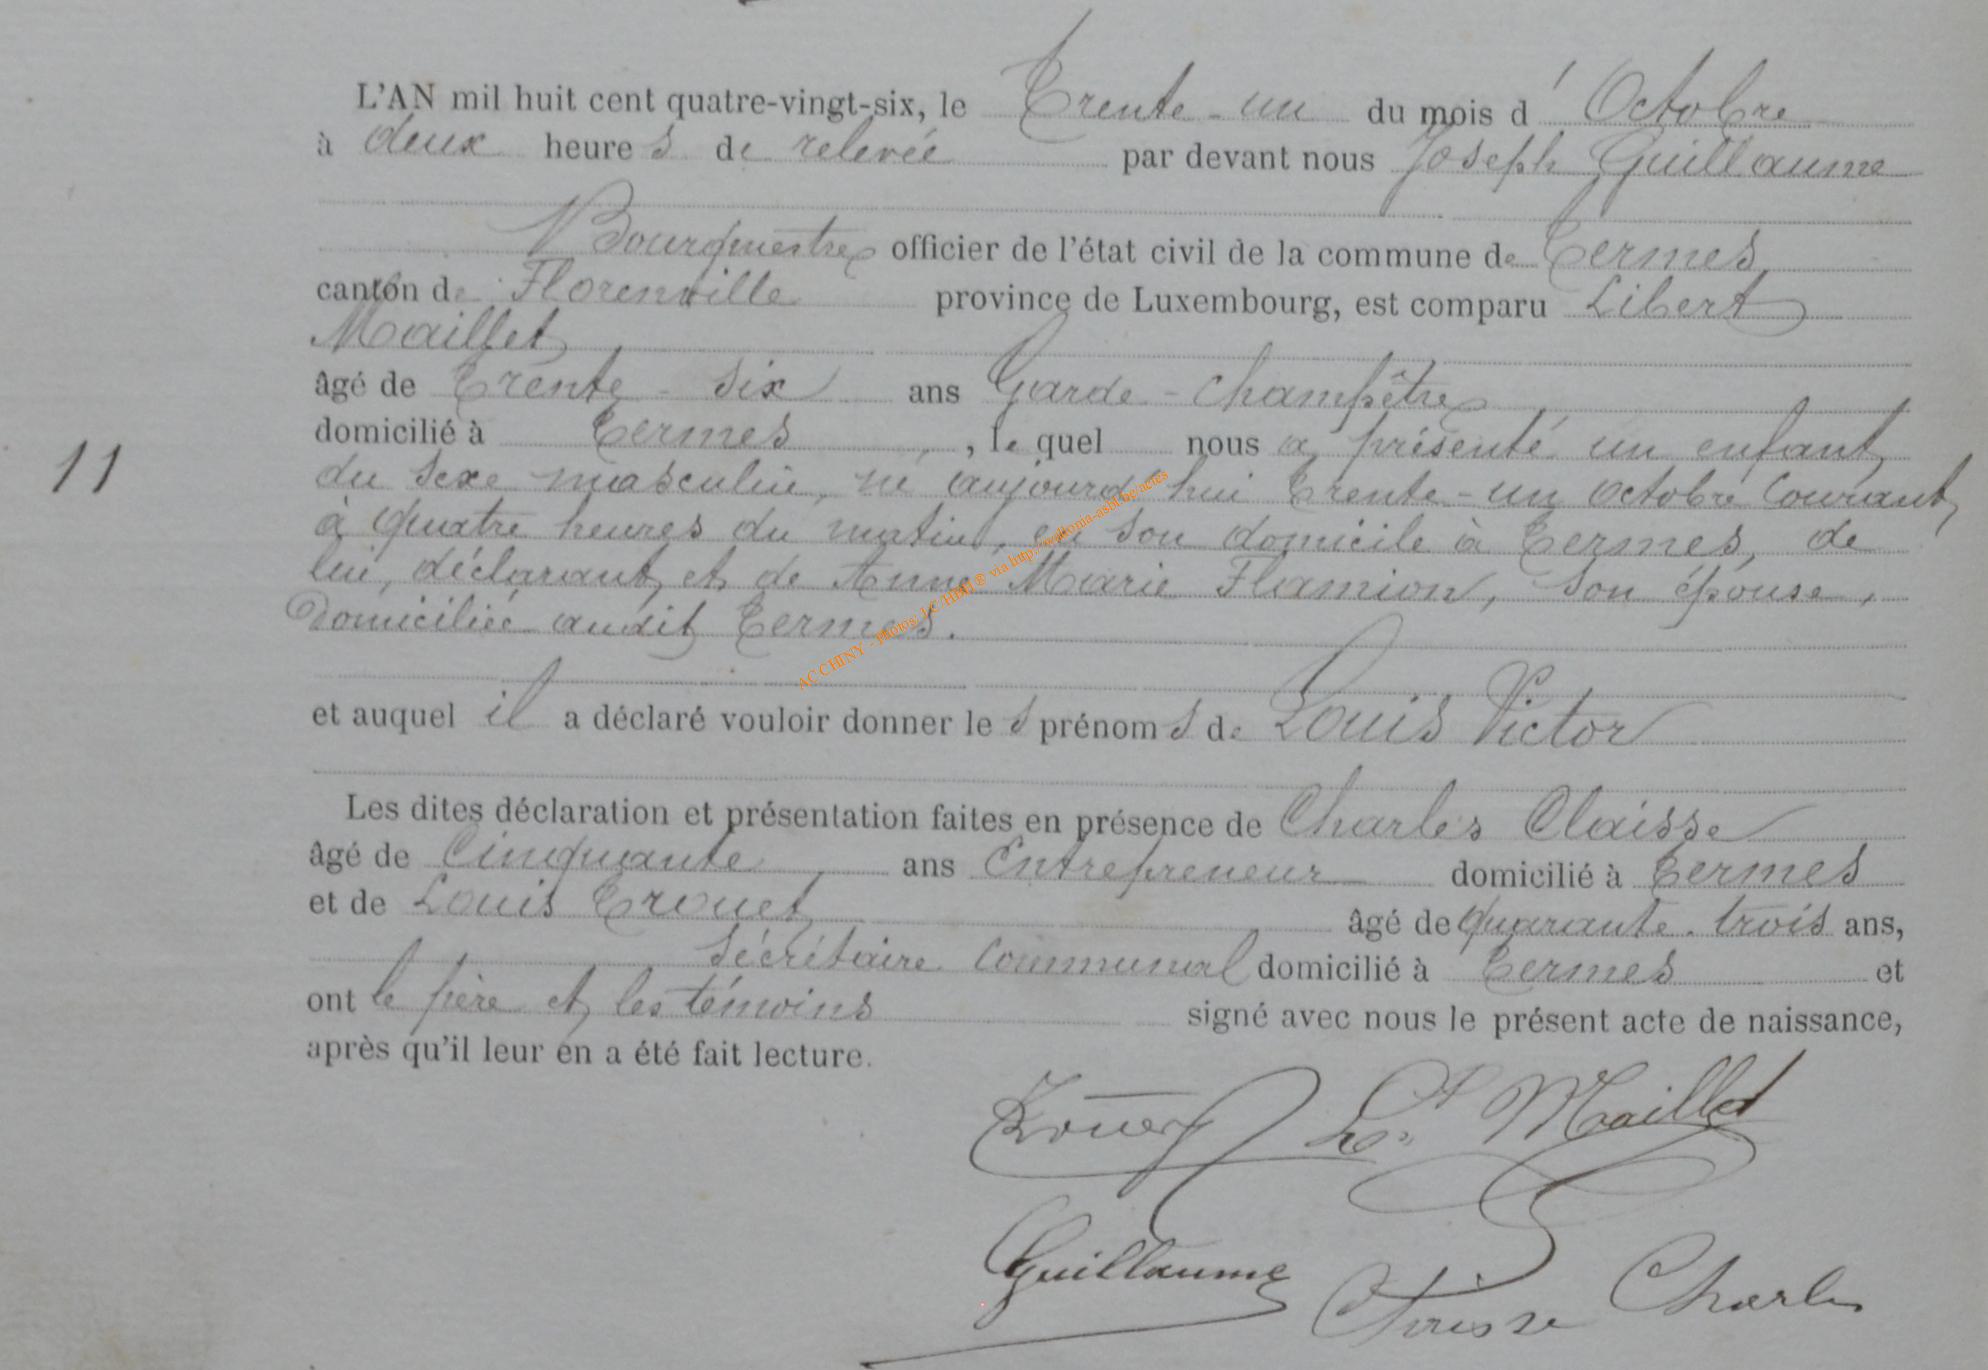 L'AN mil huit cent quatre-vingt-six, le Trente-un du mois d'Octobre
à deux heures de relevée par devant nous Joseph Guillaume
Bourgmestre officier de l'état civil de la commune de Termes,
canton de Florenville province de Luxembourg, est comparu Libert
Maillet
âgé de Trente-six ans Garde-Champêtre
domicilié à Termes, le quel nous a présenté un enfant
11
du sexe masculin, né aujourd'hui Trente-un octobre Courant,
à quatre heures du matin, en son domicile à Termes, de
lui, déclarant et de Anne Marie Flamion, son épouse,
Domiciliée audit Termes.
AC CHINY - photos J.C HBH ® via http://wallonia-asbl.be/actes
et auquel il a déclaré vouloir donner les prénoms de Louis Victor
Les dites déclaration et présentation faites en présence de Charles Claisse
âgé de Cinquante ans Entrepreneur domicilié à Termes
et de Louis Trouet âgé de quarante-trois ans,
Sécrétaire Communal domicilié à Termes et
ont le père et les témoins signé avec nous le présent acte de naissance,
après qu'il leur en a été fait lecture.
Lt Maillet
Guillaume Charles